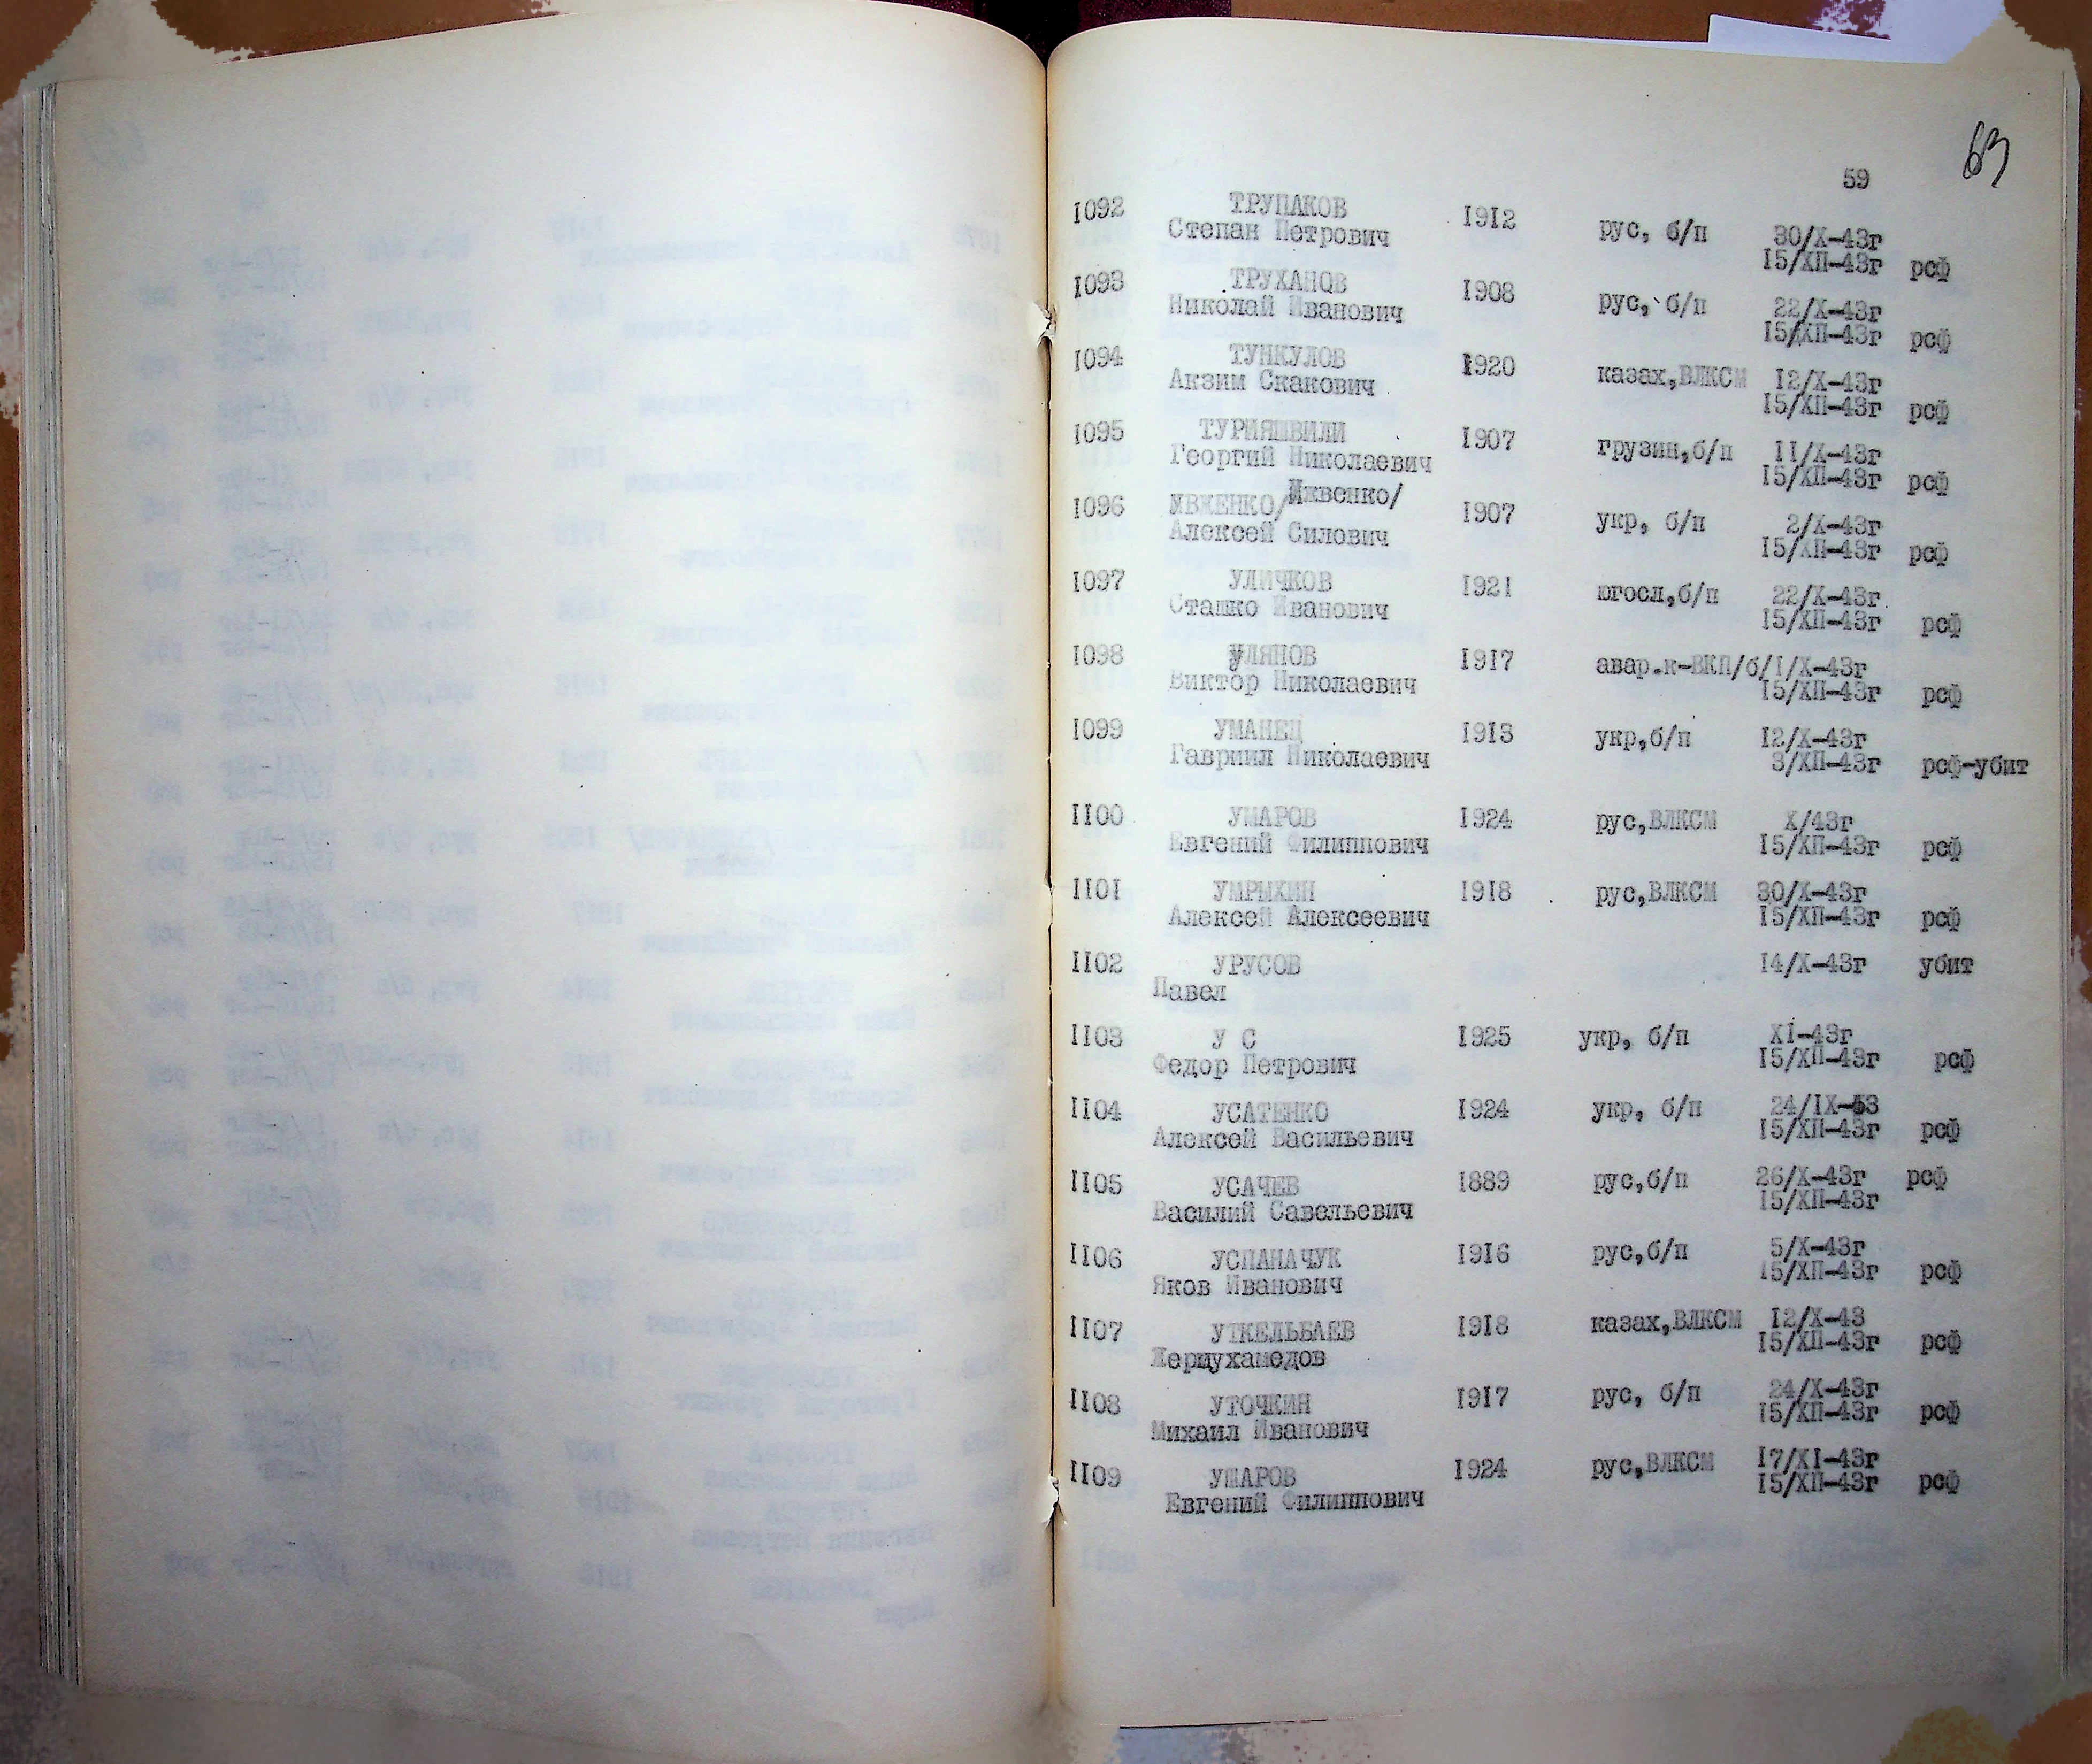 63
59
1092 ТРУПАКОВ 1912 рус, б/п 30/Х-43г
Степан Петрович 15/ХП-43г рсф
1093 ТРУХАНОВ 1908 рус, б/п 22/Х-43г
Николай Иванович 15/ХП-43г рсф
1094 ТУНКУЛОВ 1920 казах,ВЛКСМ 12/Х-43г
Акзим Скакович 15/ХП-43г рсф
1095 ТУРИЯШВИЛИ 1907 грузин,б/п 11/Х-43г
Георгий Николаевич 15/ХП-43г рсф
1096 ИВЖЕНКО/Ижвенко/ 1907 укр, б/п 2/Х-43г
Алексей Силович 15/ХП-43г рсф
1097 УЛИЧКОВ 1921 югосл,б/п 22/Х-43г
Сташко Иванович 15/ХП-43г рсф
1098 УЛЯНОВ 1917 авар.к-ВКП/б/1/Х-43г
Виктор Николаевич 15/ХП-43г рсф
1099 УМАНЕЦ 1913 укр,б/п 12/Х-43г
Гавриил Николаевич 3/ХП-43г рсф-убит
1100 УМАРОВ 1924 рус,ВЛКСМ Х/43г
Евгений Филиппович 15/ХП-43г рсф
1101 УМРЫХИН 1918 рус,ВЛКСМ 30/Х-43г
Алексей Алексеевич 15/ХП-43г рсф
1102 УРУСОВ 14/Х-43г убит
Павел
1103 У С 1925 укр, б/п ХI-43г
Федор Петрович 15/ХП-43г рсф
1104 УСАТЕНКО 1924 укр, б/п 24/IХ-53
Алексей Васильевич 15/ХП-43г рсф
1105 УСАЧЕВ 1889 рус,б/п 26/Х-43г рсф
Василий Савельевич 15/ХП-43г
1106 УСПАНАЧУК 1916 рус,б/п 5/Х-43г
Яков Иванович 15/ХП-43г рсф
1107 УТКЕЛЬБАЕВ 1918 казах,ВЛКСМ 12/Х-43
15/ХП-43г рсф
1108 УТОЧКИН 1917 рус, б/п 24/Х-43г
Михаил Иванович 15/ХП-43г рсф
1109 УМАРОВ 1924 рус,ВЛКСМ 17/ХI-43г
Евгений Филиппович 15/ХП-43г рсф